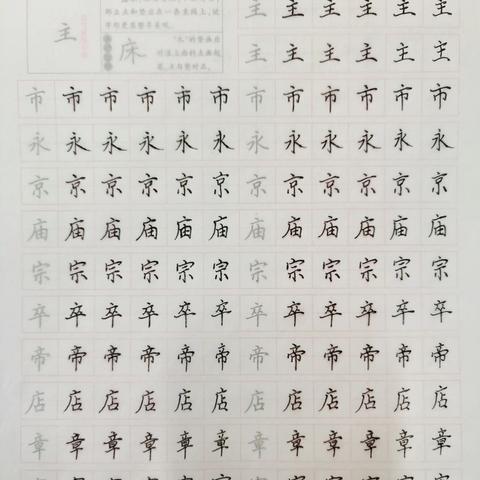 主 主 主 主 主 主
主 主 主 主 主 主
主
床
市 市 市 市 市 市 市 市 市 市 市 市
永 永 永 永 永 永 永 永 永 永 永 永
京 京 京 京 京 京 京 京 京 京 京 京
庙 庙 庙 庙 庙 庙 庙 庙 庙 庙 庙 庙
宗 宗 宗 宗 宗 宗 宗 宗 宗 宗 宗 宗
卒 卒 卒 卒 卒 卒 卒 卒 卒 卒 卒 卒
帝 帝 帝 帝 帝 帝 帝 帝 帝 帝 帝 帝
店 店 店 店 店 店 店 店 店 店 店 店
章 章 章 章 章 章 章 章 章 章 章 章